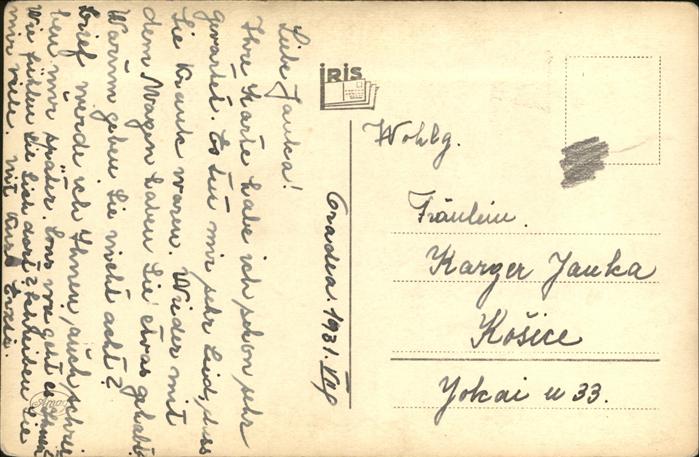 Liebe Janka!
Ihre Karte habe ich schon sehr
gewartet. Es tut mir sehr Leid, dass
Sie Krank waren. Wieder mit
dem Magen haben Sie etwas gehabt?
Warum geben Sie nicht acht?
Brief werde ich Ihnen, auch, schrei
ben mir später. Sons wo geht es
Wie fühlen Sie sich dort? Schreiben Sie
mir viele. Mit Kuss
Oradea. 1931. VII
IRIS
Wohlg.
Fräulein.
Karger Janka
Košice
Yokai u 33.